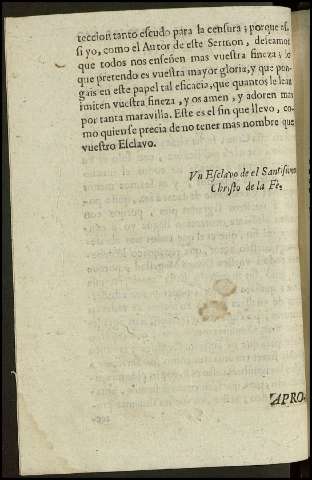 teccion tanto escudo para la censura ; porque as-
si yo, como el Autor de este Sermon , deseamos
que todos nos enseñen mas vuestra fineza ; lo
que pretendo es vuestra mayor gloria, y que pon-
gais en este papel tal eficacia, que quantos le lean
imiten vuestra fineza , y os amen , y adoren mas
por tanta maravilla. Este es el fin que llevo , co-
mo quien se precia de no tener mas nombre que
vuestro Esclavo.
Vn Esclavo de el Santissimo
Christo de la Fè.
APRO-